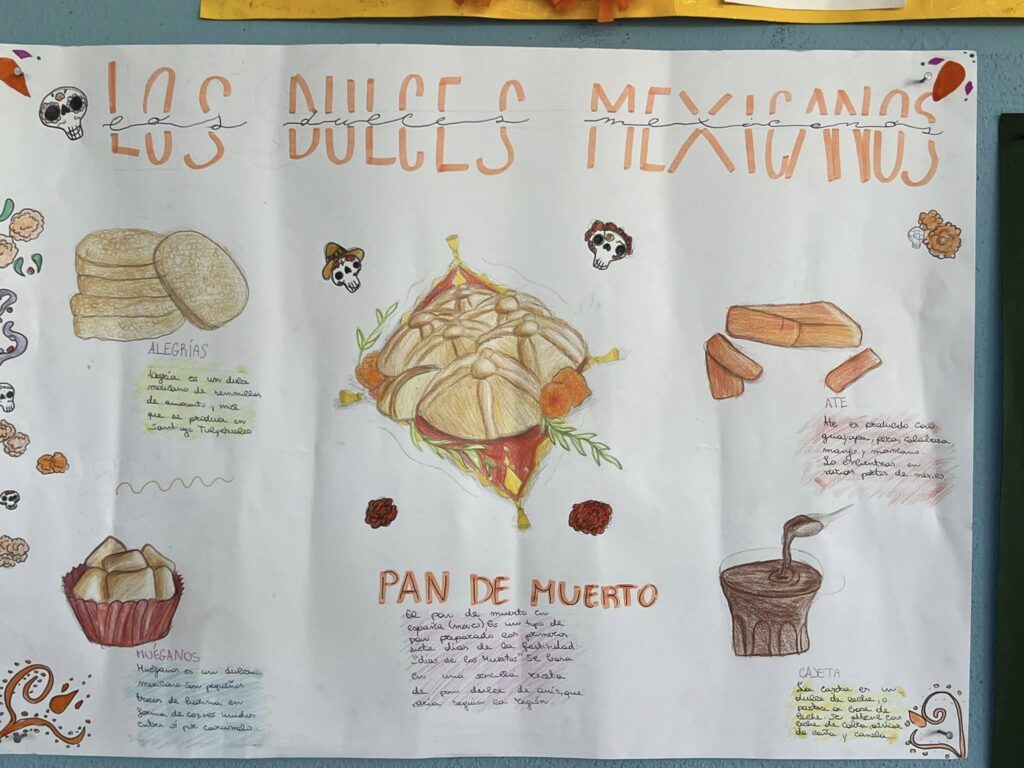 LOS DULCES MEXICANOS
los dulces mexicanos
ALEGRÍAS
Alegría es un dulce
mexicano de semmillas
de amaranto y miel
que se produce en
Santiago Tulyehualco
MUÉGANOS
Muéganos es un dulce
mexicano con pequeños
trozos de harina en
forma de cubos unidos
entre sí por caramelo.
PAN DE MUERTO
El pan de muerto en
españa (mexico) Es un tipo de
pan preparado los primeros
siete días de la festividad
"días de los Muertos" Se basa
en una sencilla receta
de pan dulce de anís, que
varia según la región.
ATE
Ate es producido con
guayaba, pera, calabaza,
mango y manzana.
Lo encuentras en
varias partes de mexico
CAJETA
La cajeta es un
dulce de leche, o
pastra a base de
leche. Se obtiene con
leche de cabra, azúcar
de caña y canela.